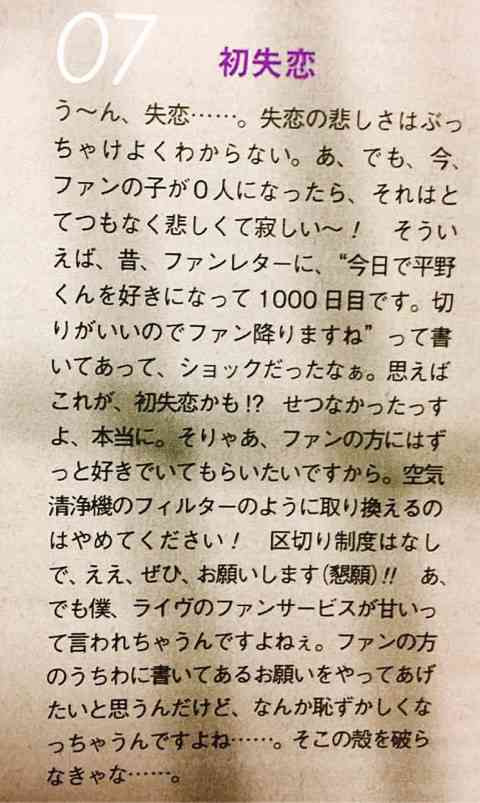 07
初失恋
う〜ん、失恋……。失恋の悲しさはぶっ
ちゃけよくわからない。あ、でも、今、
ファンの子が0人になったら、それはと
てつもなく悲しくて寂しい〜！　そうい
えば、昔、ファンレターに、“今日で平野
くんを好きになって1000日目です。切
りがいいのでファン降りますね”って書
いてあって、ショックだったなぁ。思えば
これが、初失恋かも!?　せつなかったっす
よ、本当に。そりゃあ、ファンの方にはず
っと好きでいてもらいたいですから。空気
清浄機のフィルターのように取り換えるの
はやめてください！　区切り制度はなし
で、ええ、ぜひ、お願いします（懇願）!!　あ、
でも僕、ライヴのファンサービスが甘いっ
て言われちゃうんですよねぇ。ファンの方
のうちわに書いてあるお願いをやってあげ
たいと思うんだけど、なんか恥ずかしくな
っちゃうんですよね……。そこの殻を破ら
なきゃな……。